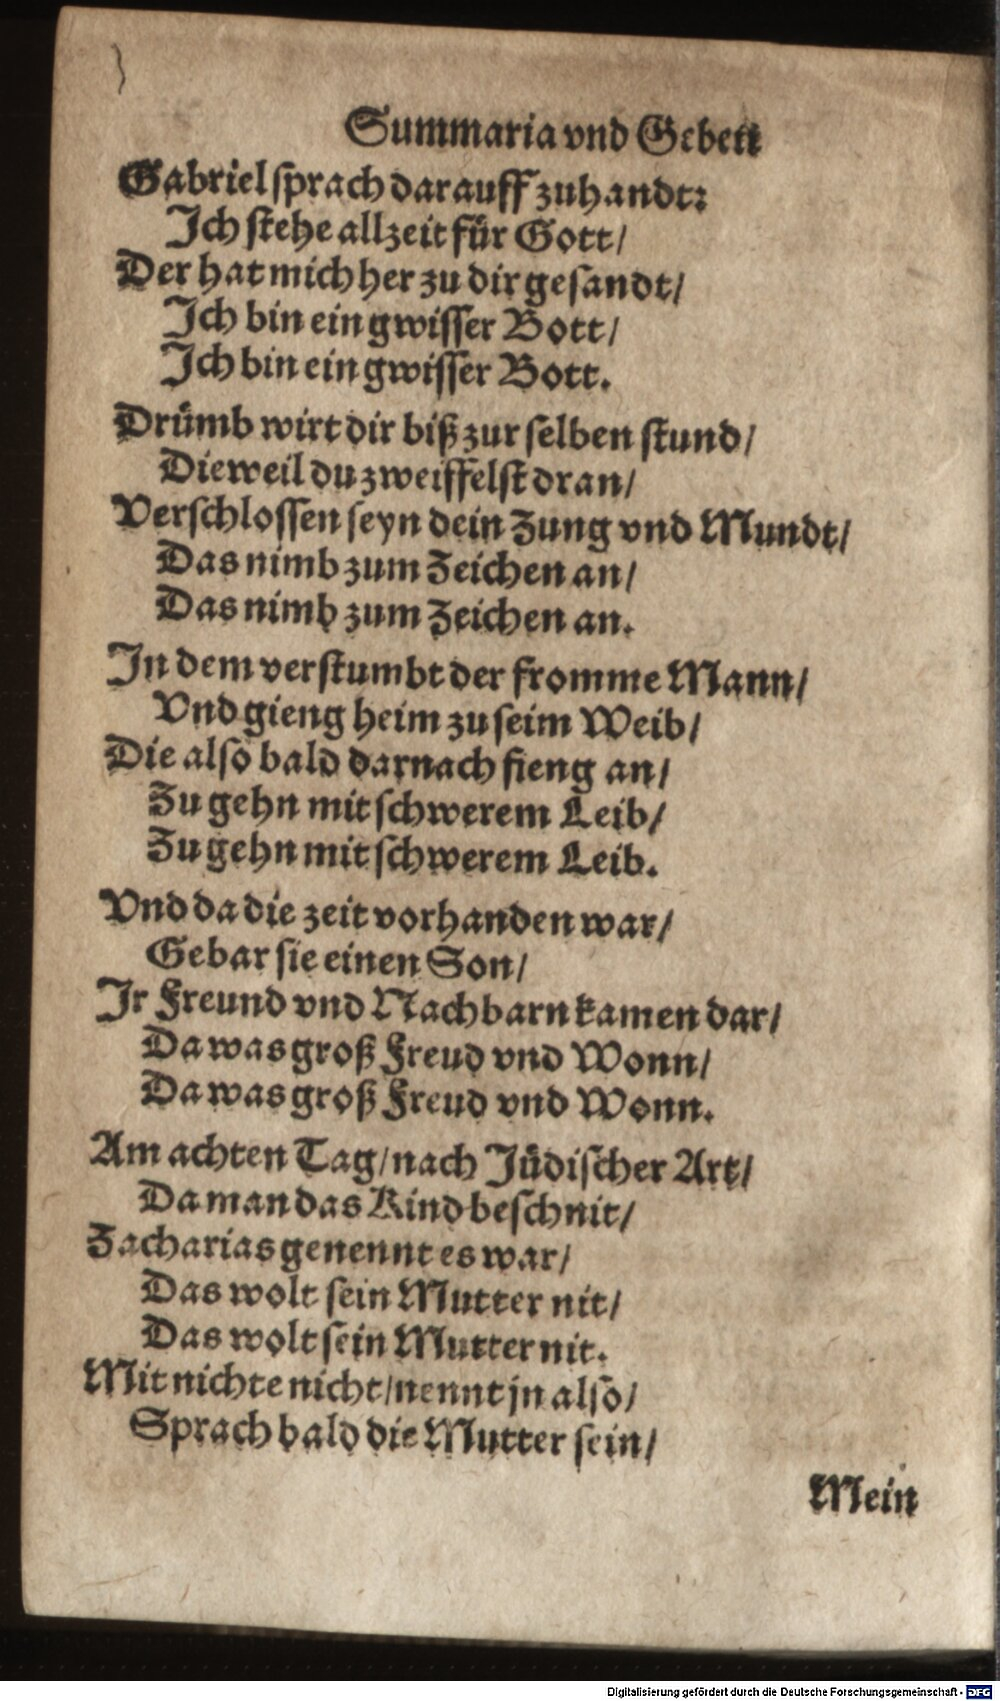 Summaria vnd Gebett
Gabriel sprach darauff zuhandt:
Ich stehe allzeit für Gott/
Der hat mich her zu dir gesandt/
Ich bin ein gwisser Bott/
Ich bin ein gwisser Bott.
Drümb wirt dir biß zur selben stund/
Dieweil du zweiffelst dran/
Verschlossen seyn dein Zung vnd Mundt/
Das nimb zum Zeichen an/
Das nimb zum Zeichen an.
In dem verstumbt der fromme Mann/
Vnd gieng heim zu seim Weib/
Die also bald darnach fieng an/
Zu gehn mit schwerem Leib/
Zu gehn mit schwerem Leib.
Vnd da die zeit vorhanden war/
Gebar sie einen Son/
Ir Freund vnd Nachbarn kamen dar/
Da was groß Freud vnd Wonn/
Da was groß Freud vnd Wonn.
Am achten Tag/nach Jüdischer Art/
Da man das Kind beschnit/
Zacharias genennt es war/
Das wolt sein Mutter nit/
Das wolt sein Mutter nit.
Mit nichte nicht/nennt jn also/
Sprach bald die Mutter sein/
Mein
Digitalisierung gefördert durch die Deutsche Forschungsgemeinschaft - DFG